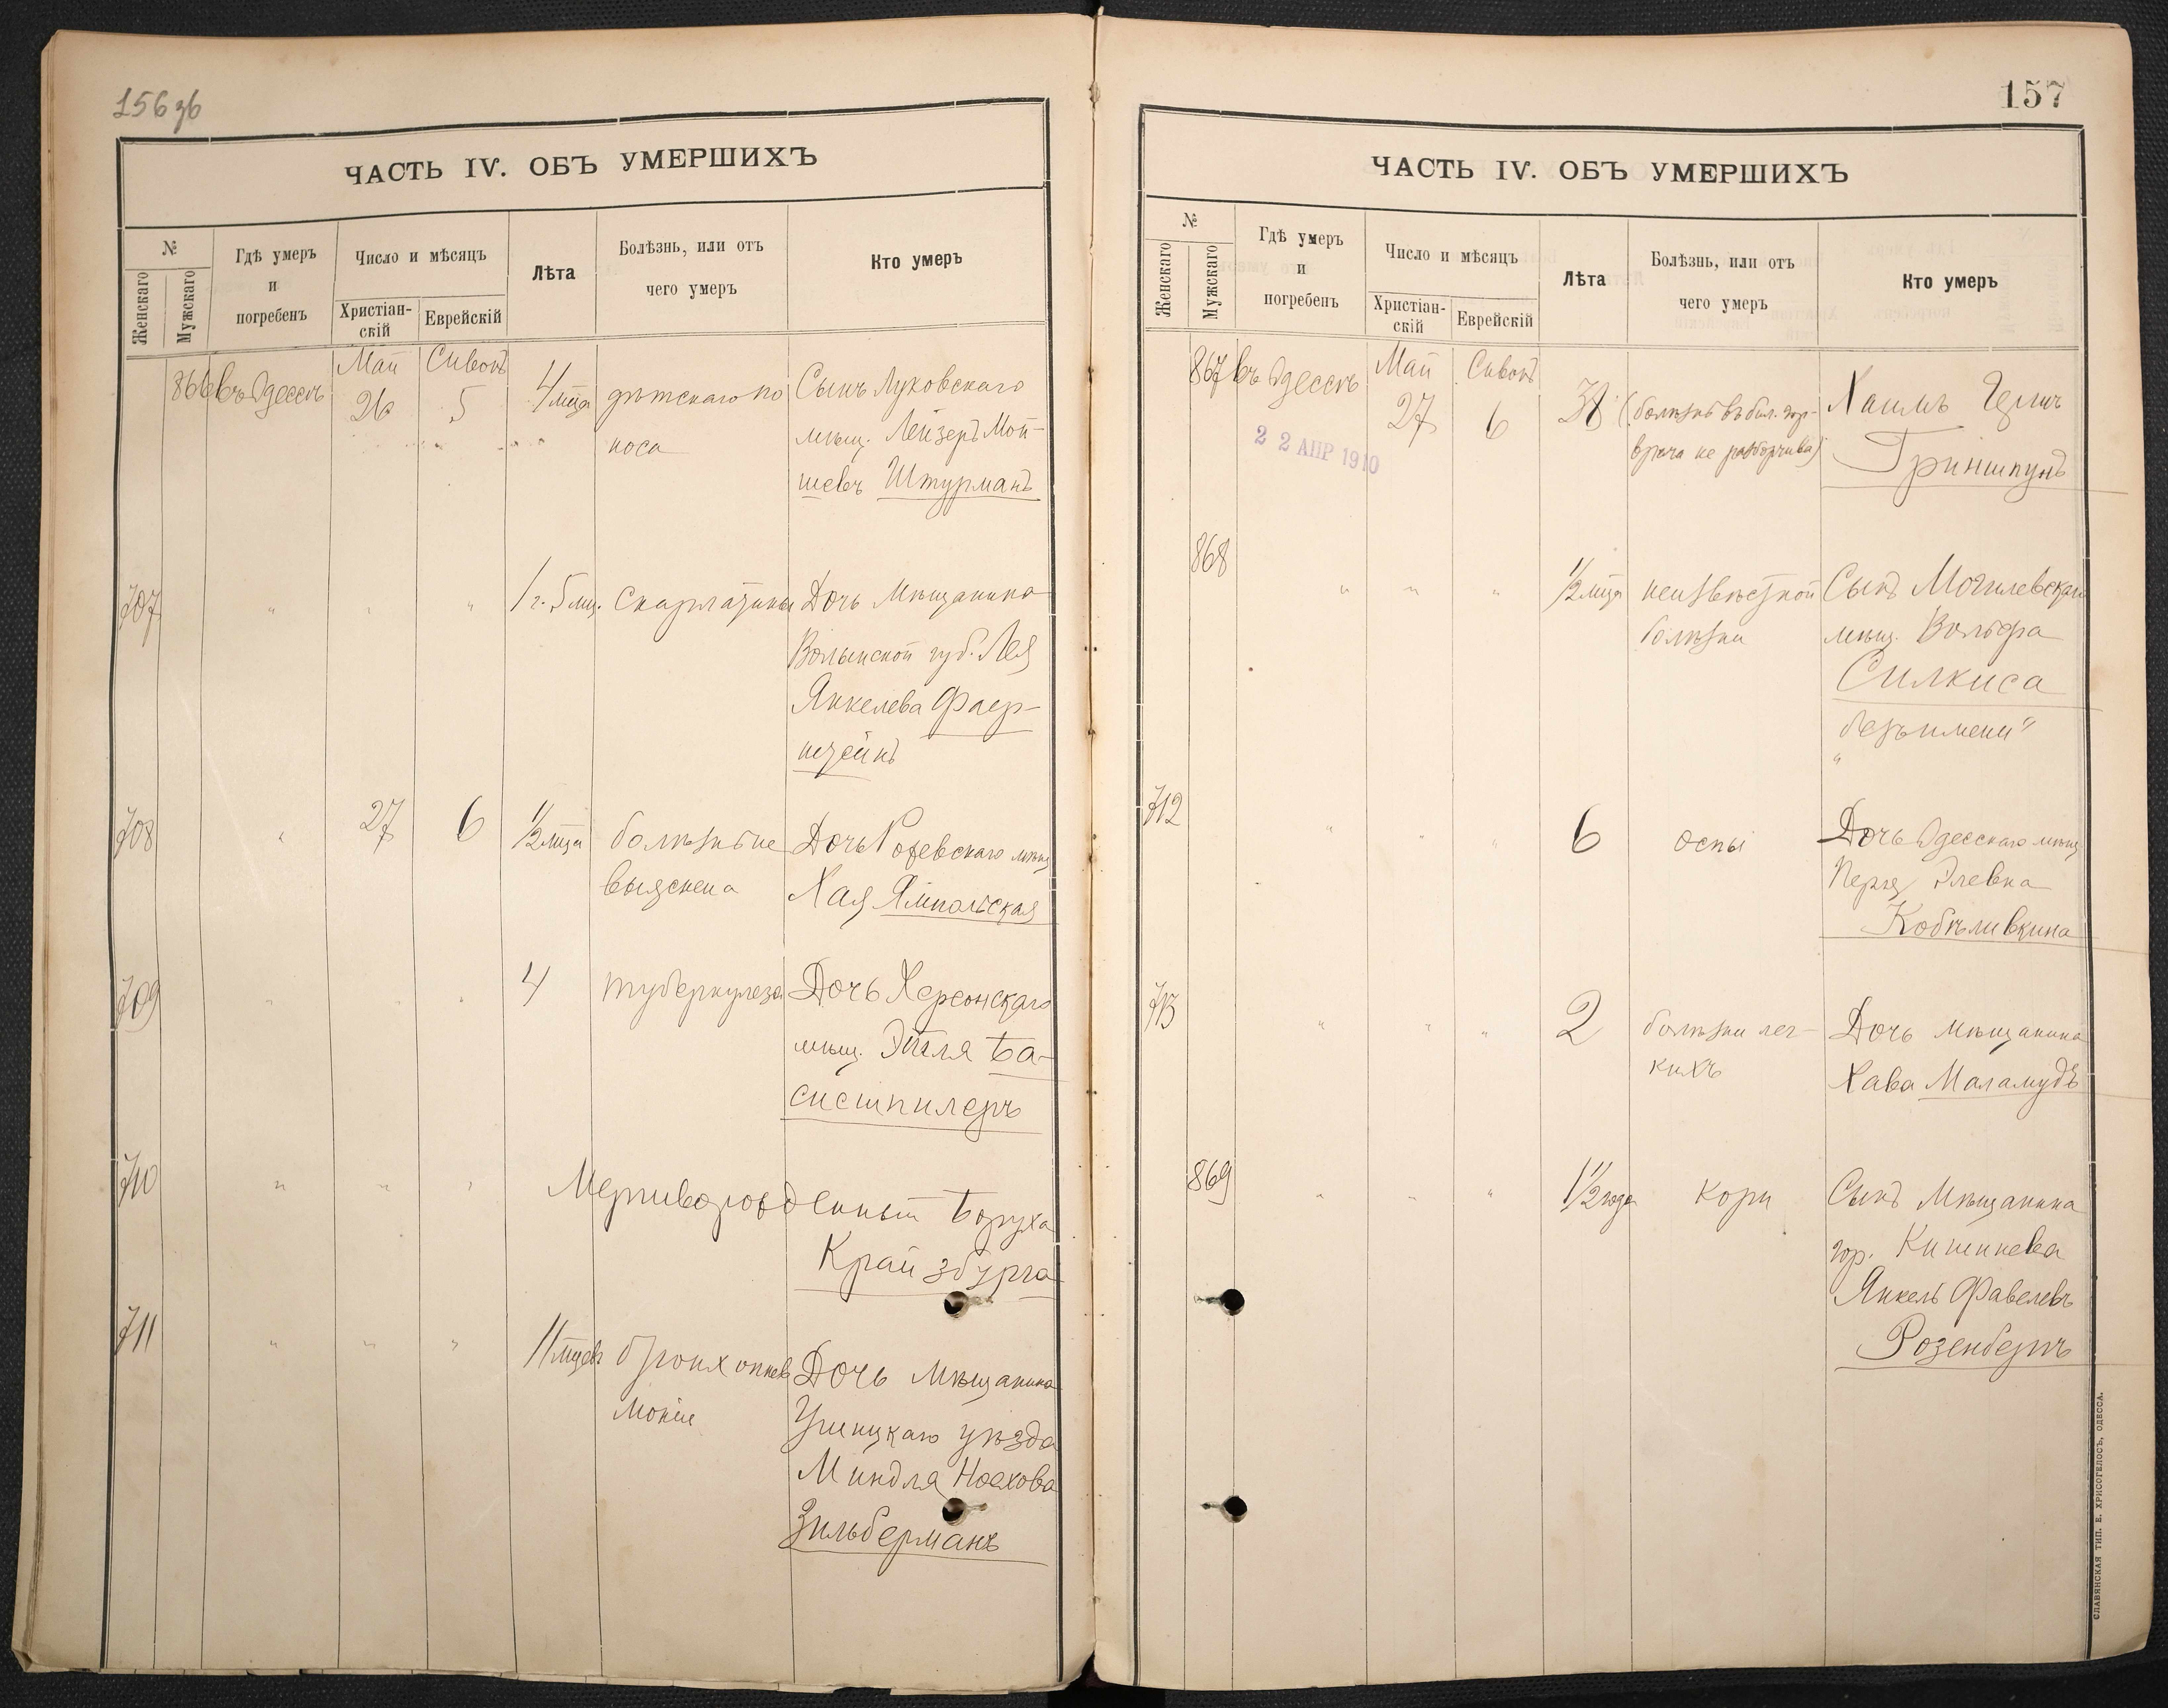 156 зб
ЧАСТЬ IV. ОБЪ УМЕРШИХЪ
№
Женскаго
Мужскаго
Гдѣ умеръ
и
погребенъ
Число и мѣсяцъ
Христіан-
скій
Еврейскій
Лѣта
Болѣзнь, или отъ
чего умеръ
Кто умеръ
Май Сивонъ
866 въ Одессѣ 26 5 4 мѣца дѣтскаго по
носа
Сынъ Луковскаго
мѣщ. Лейзеръ Мой-
шевъ Штурманъ
707 " " " 1 г. 5 мц. Скарлатины
Дочь Мѣщанина
Волынской губ. Лея
Янкелева Фаер-
штейнъ
708 " 27 6 1/2 мца болѣзнь не
выяснена
Дочь мѣщ
Хая Ямпольская
709 " " " 4 туберкулеза
Дочь Херсонскаго
мѣщ. Этля Ба-
сисшпилеръ
710 " " " Мертворожденный Боруха
Крайзбурга
711 " " " 11 мцевъ бронхопнев
моніи
Дочь Мѣщанина
Ушицкаго уѣзда
Миндля Ноехова
Зильберманъ
157
ЧАСТЬ IV. ОБЪ УМЕРШИХЪ
№
Женскаго
Мужскаго
Гдѣ умеръ
и
погребенъ
Число и мѣсяцъ
Христіан-
скій
Еврейскій
Лѣта
Болѣзнь, или отъ
чего умеръ
Кто умеръ
Май Сивонъ
867 въ Одессѣ 27 6 38 (болѣзнь въ бил. гор-
врача не разборчива)
22 АПР 1910
Хаимъ
Гриншпунъ
868 " " " 1/2 мца неизвѣстной
болѣзни
Сынъ Могилевскаго
мѣщ. Вольфа
Силкиса
"безъ имени"
712 " " " 6 оспы
Дочь Одесскаго мѣщ
Перля
Кобѣливкина
713 " " " 2 болѣзни лег-
кихъ
Дочь мѣщанина
Хава Маламудъ
869 " " " 1 1/2 года кори
Сынъ Мѣщанина
гор. Кишинева
Янкель Фавелевъ
Розенбергъ
СЛАВЯНСКАЯ ТИП. Е. ХРИСОГЕЛОСЪ, ОДЕССА.